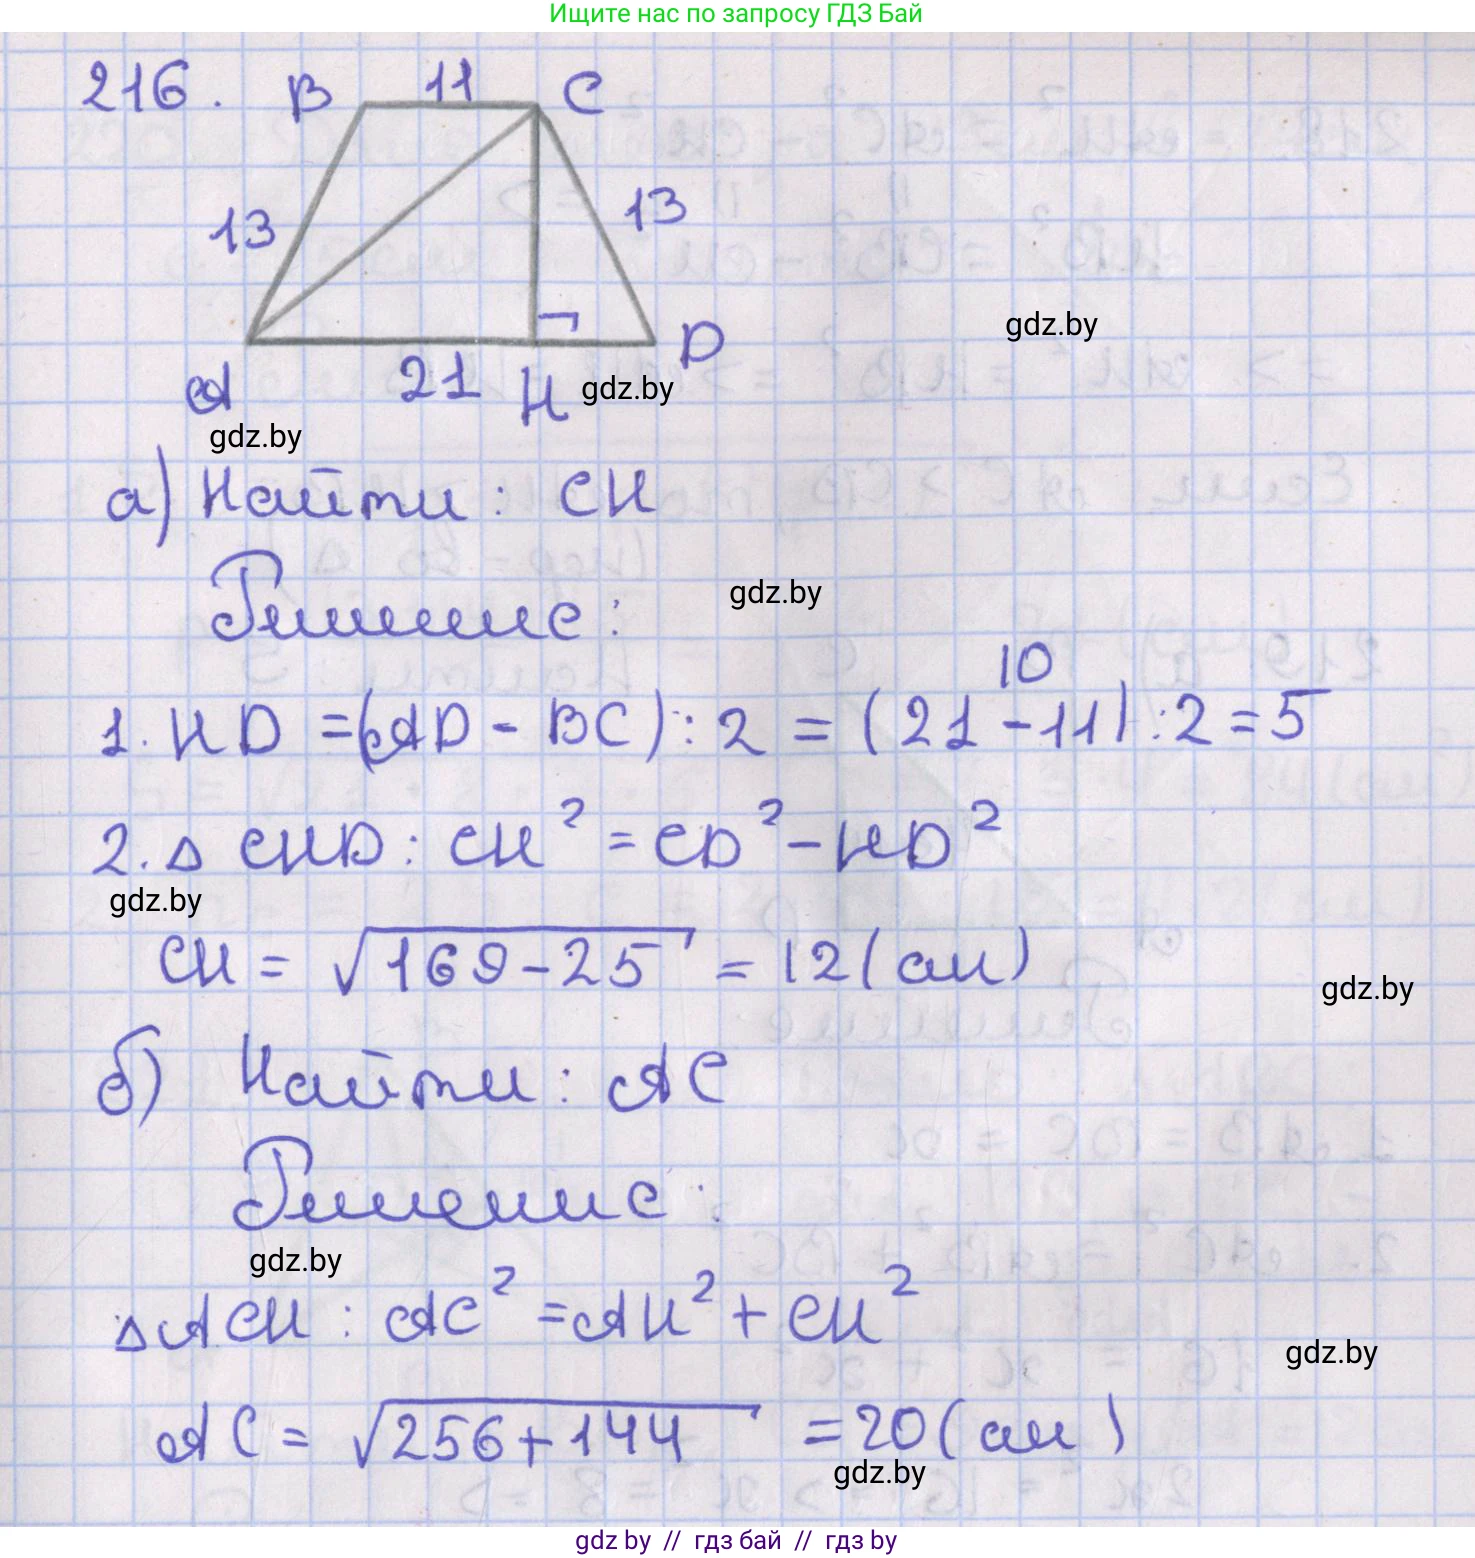 Ищите нас по запросу ГДЗ Бай
216. B 11 C
13 13
gdz.by
D
A 21 H gdz.by
gdz.by
а) Найти: CH
Решение:
gdz.by
10
1. HD = (AD - BC) : 2 = (21 - 11) : 2 = 5
2. △ CHD : CH² = CD² - HD²
gdz.by
CH = √169 - 25 = 12 (см)
gdz.by
б) Найти: AC
Решение:
gdz.by
△ ACH : AC² = AH² + CH²
gdz.by
AC = √256 + 144 = 20 (см)
gdz.by
gdz by // гдз бай // гдз by